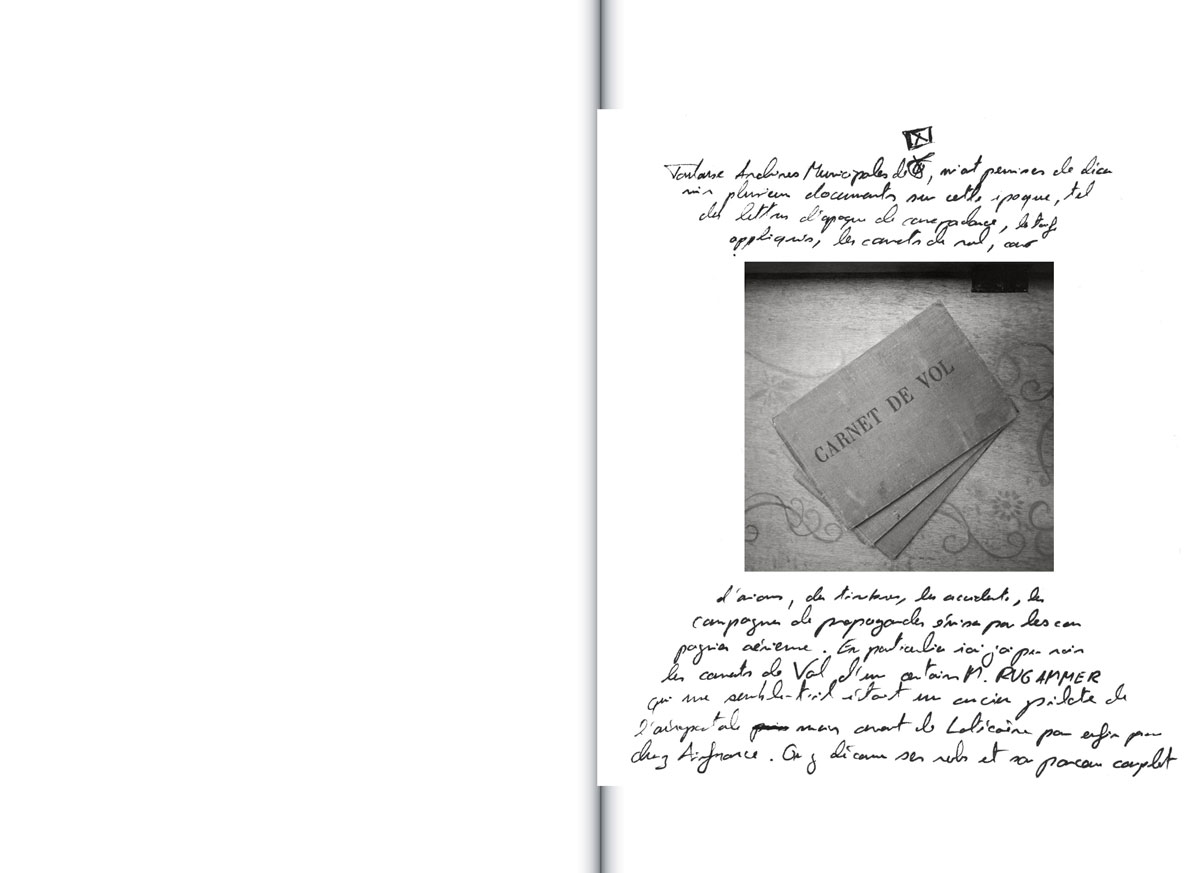 X
Toulouse Archives Municipales de, m'ont permises de décou
vrir plusieurs documents sur cette époque, tel
des lettres d'époque de, les
appliqués, les carnets de vol,
CARNET DE VOL
d'avions, des timbres, les accidents, les
campagnes de propagandes par les com
pagnies aérienne. En particulier ici j'ai pu voir
les carnets de Vol d'un certain M. RUGAMMER
qui me semble-t-il était un ancien pilote de
l'aéropostale mais avant de Latécoère
chez Airfrance. On y découvre ses vols et son parcours complet